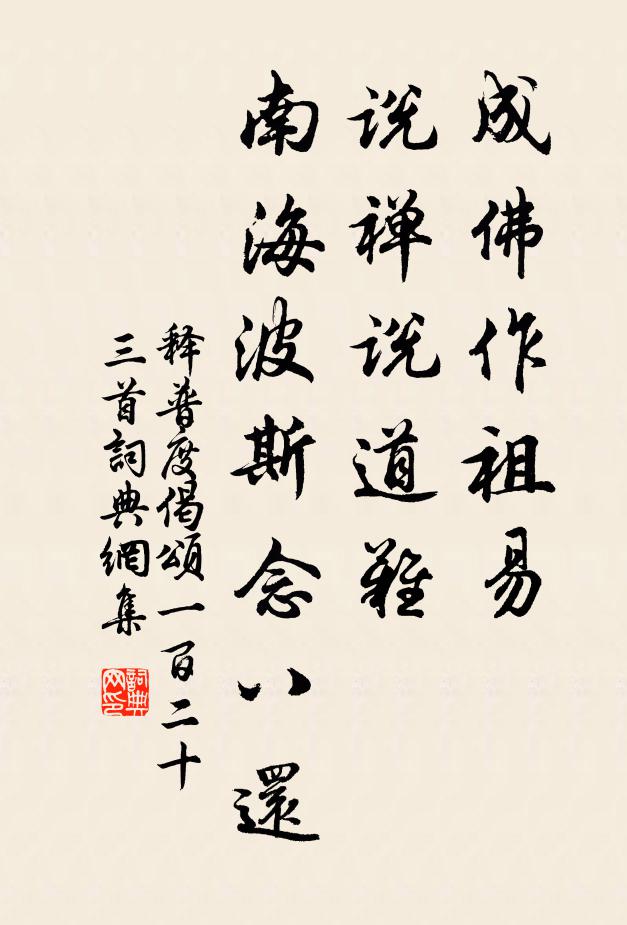 成佛作祖易
说禅说道難
南海波斯念八還
释普度偈頌一百二十
三首詞典網集
詞典
网印